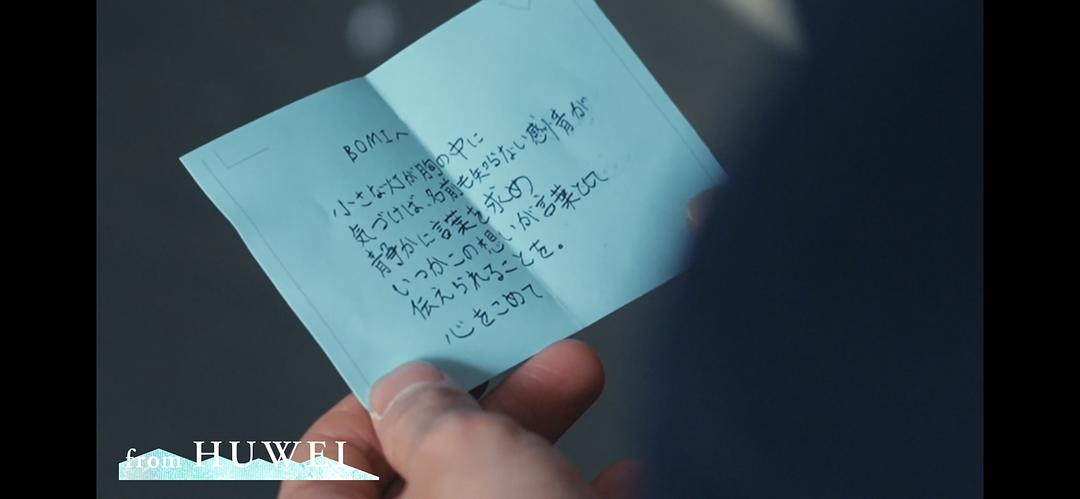 BOMIへ
小さな灯が胸の中に
気づけば、名前も知らない感情が
静かに言葉を求め
いつかこの想いが言葉として
伝えられることを。
心をこめて
from HUWEI